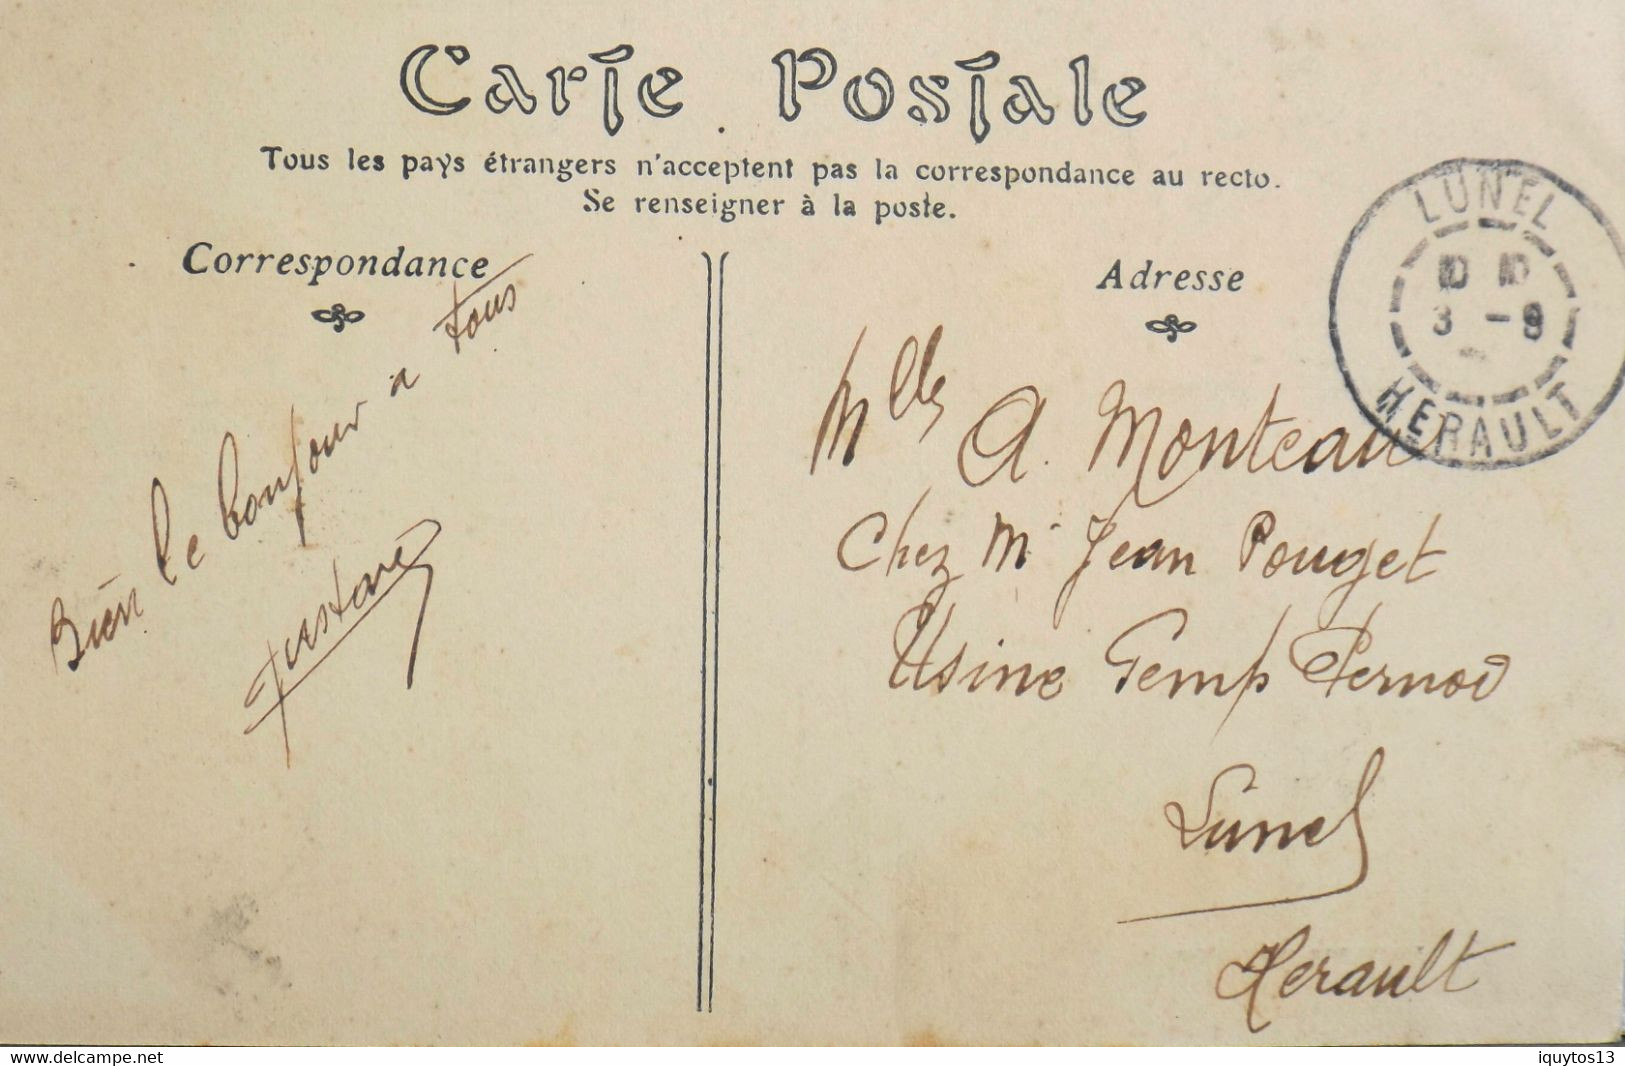 Carte Postale
Tous les pays étrangers n'acceptent pas la correspondance au recto.
Se renseigner à la poste.
Correspondance
Bien le bonjour a tous
Adresse
Mlle A. Monteau
Chez Mr Jean Pouget
Usine Pernod
Lunel
Herault
LUNEL
3 - 9
HERAULT
delcampe.net
iquytos13